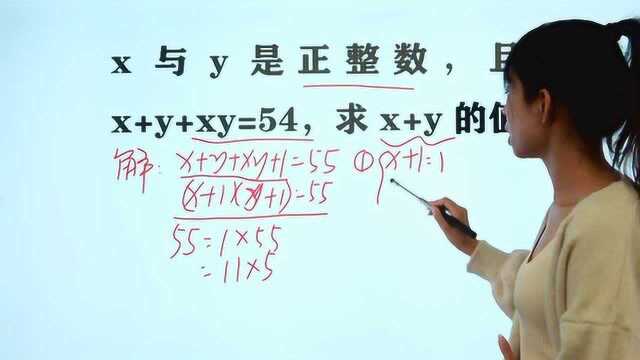 x 与 y 是正整数，且
x+y+xy=54，求 x+y 的值
解：x+y+xy+1=55
(x+1)(y+1)=55
55=1×55
=11×5
① x+1=1